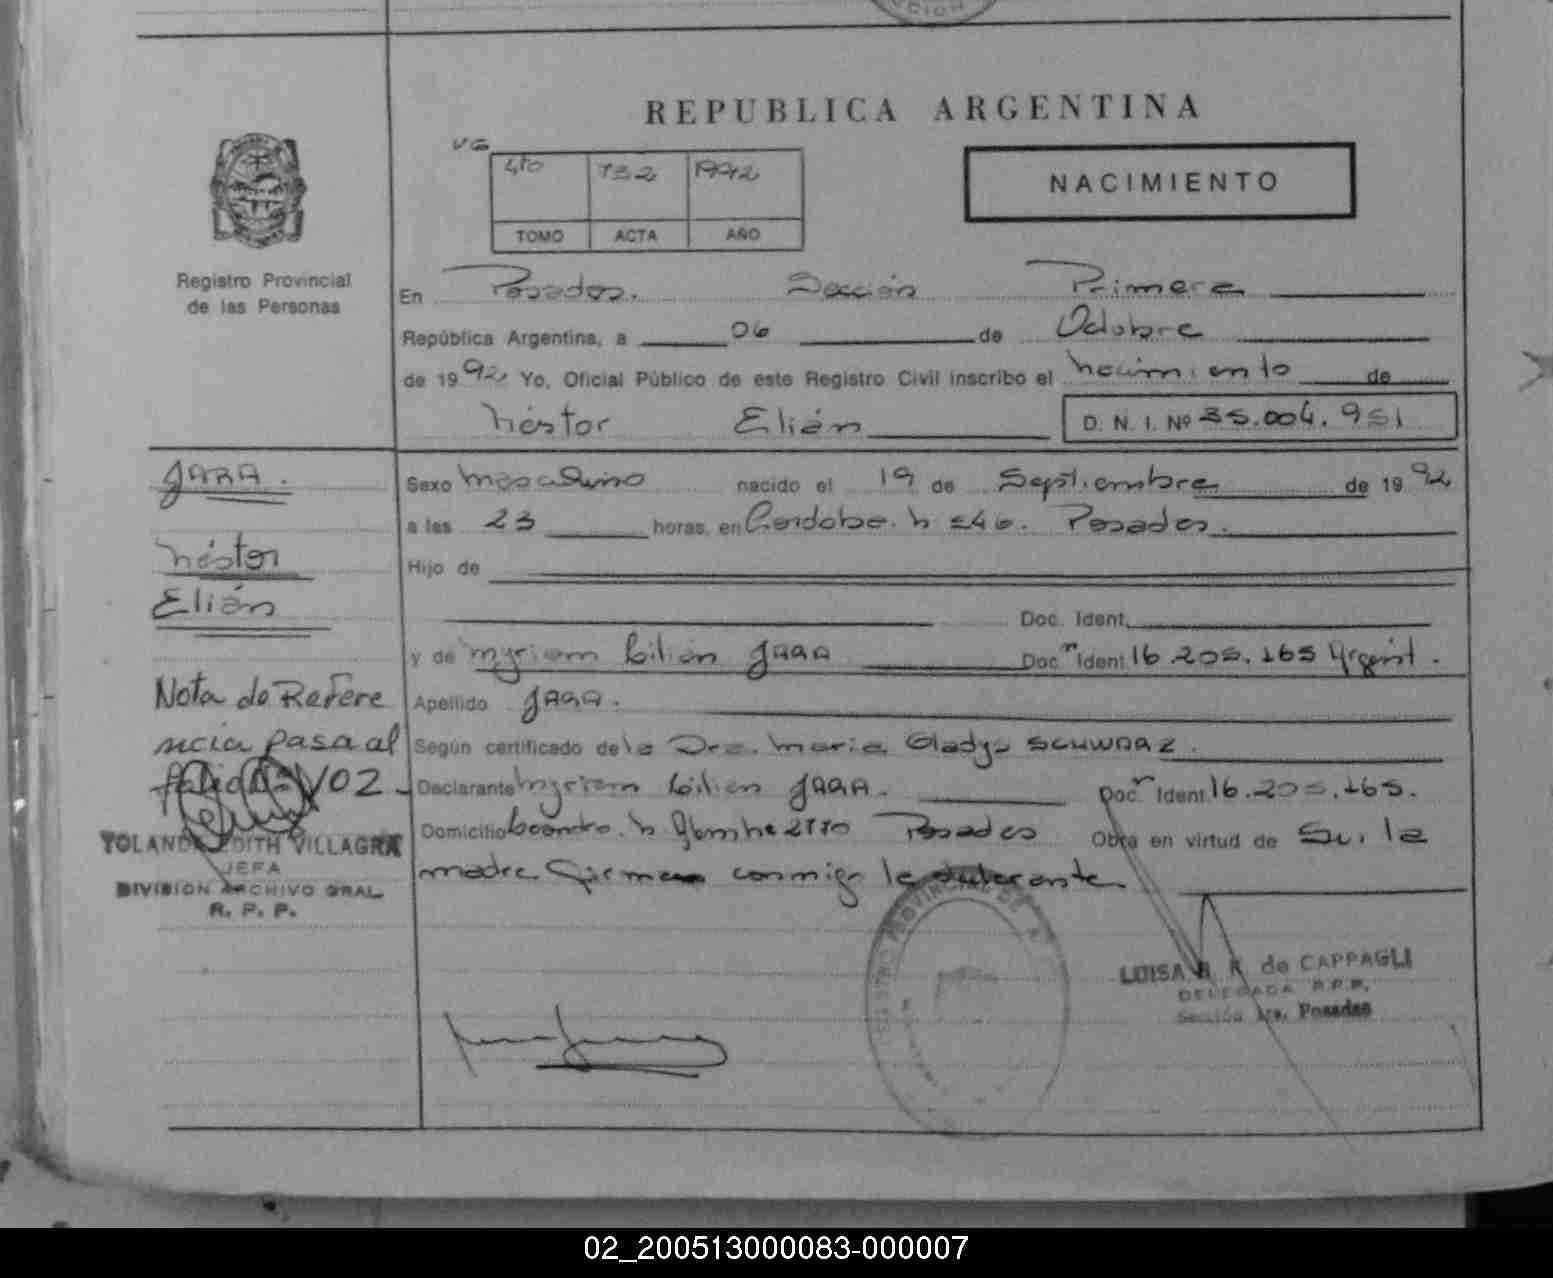 REPUBLICA ARGENTINA
VG
4to 732 1992
TOMO ACTA AÑO
NACIMIENTO
Registro Provincial
de las Personas
En Posadas. Sección Primera
República Argentina, a 06 de Octubre
de 1992 Yo, Oficial Público de este Registro Civil inscribo el nacimiento de
Néstor Elián D. N. I. Nº 35.004.951
JARA.
Néstor
Elián
Sexo masculino nacido el 19 de Septiembre de 1992
a las 23 horas, en Cordoba. N Posadas.
Hijo de
Doc. Ident.
y de Myriam Lilian JARA Doc Ident. Argent.
Apellido JARA.
Según certificado de la Dra. Maria Gladys SCHWARZ.
Declarante Myriam Lilian JARA. Doc. Ident.
Domicilio N Posadas Obra en virtud de Su. la
madre Firma conmigo la declarante.
Nota de Refere
ncia pasa al
folio V02.
YOLANDA EDITH VILLAGRA
JEFA
DIVISION ARCHIVO GRAL
R. P. P.
LUISA de CAPPAGLI
DELEGADA R.P.P.
Sección 1ra. Posadas
02_200513000083-000007